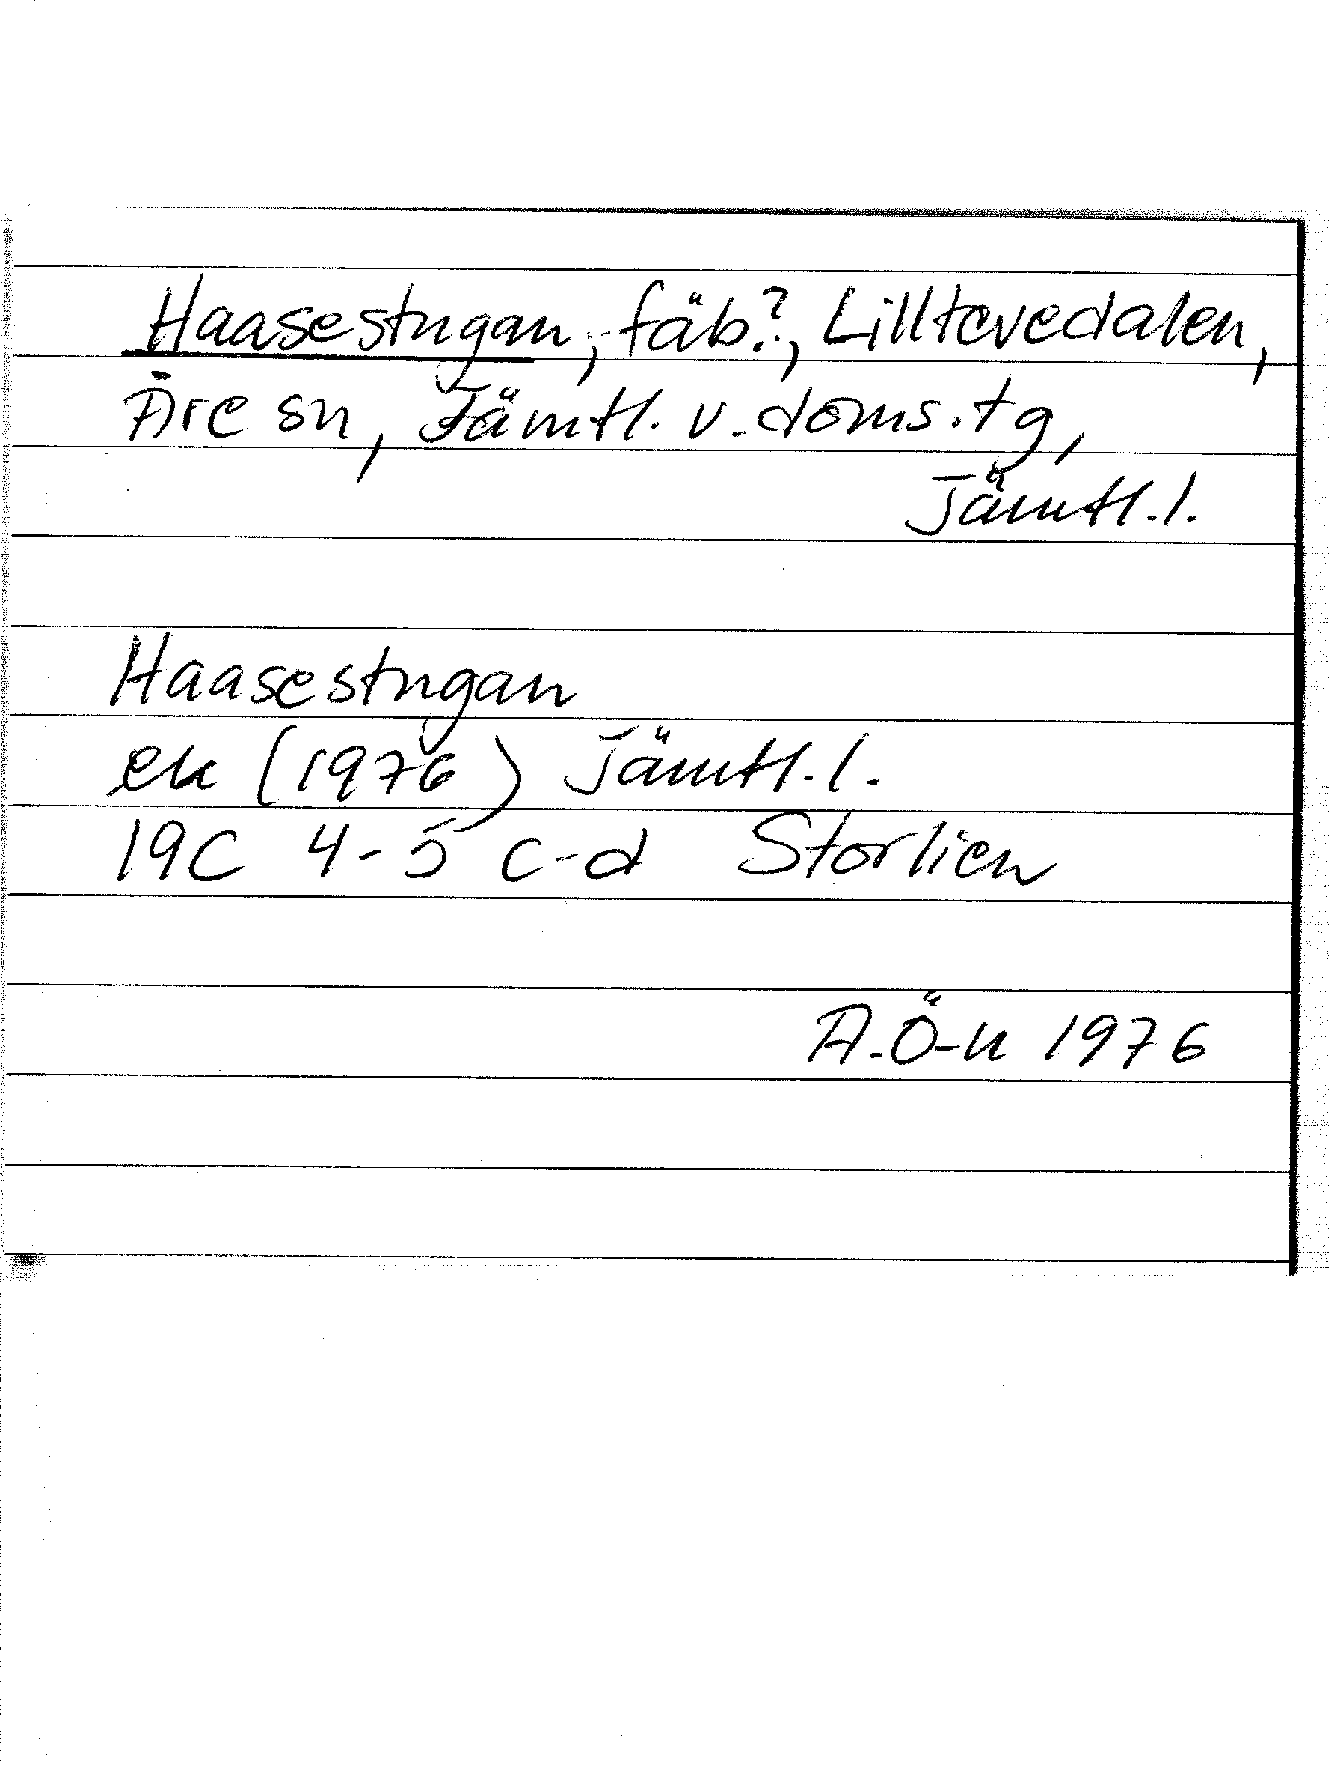 Haasestugan, fäb.?, Lilltevedalen,
Åre sn, Jämtl. v. doms. tg,
Jämtl. l.
Haasestugan
ek (1976) Jämtl. l.
19C 4-5 c-d Storlien
A. Ö-n 1976